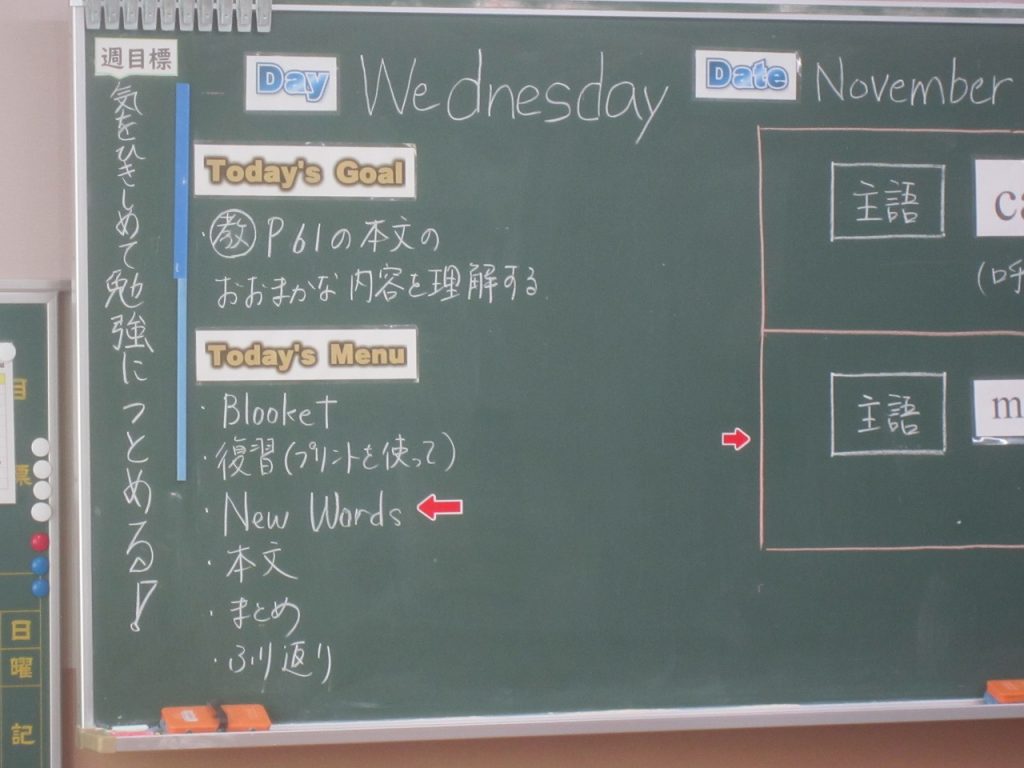 週目標
気をひきしめて勉強につとめる!
Day Wednesday
Date November
Today's Goal
・教 P61の本文の
おおまかな内容を理解する
Today's Menu
・Blooket
・復習(プリントを使って)
・New Words
・本文
・まとめ
・ふり返り
主語
ca
(呼
主語
m
目
標
日
曜
記